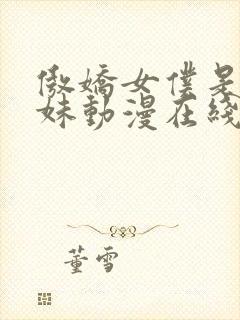 傲嬌女僕是
妹動漫在綫
董雪